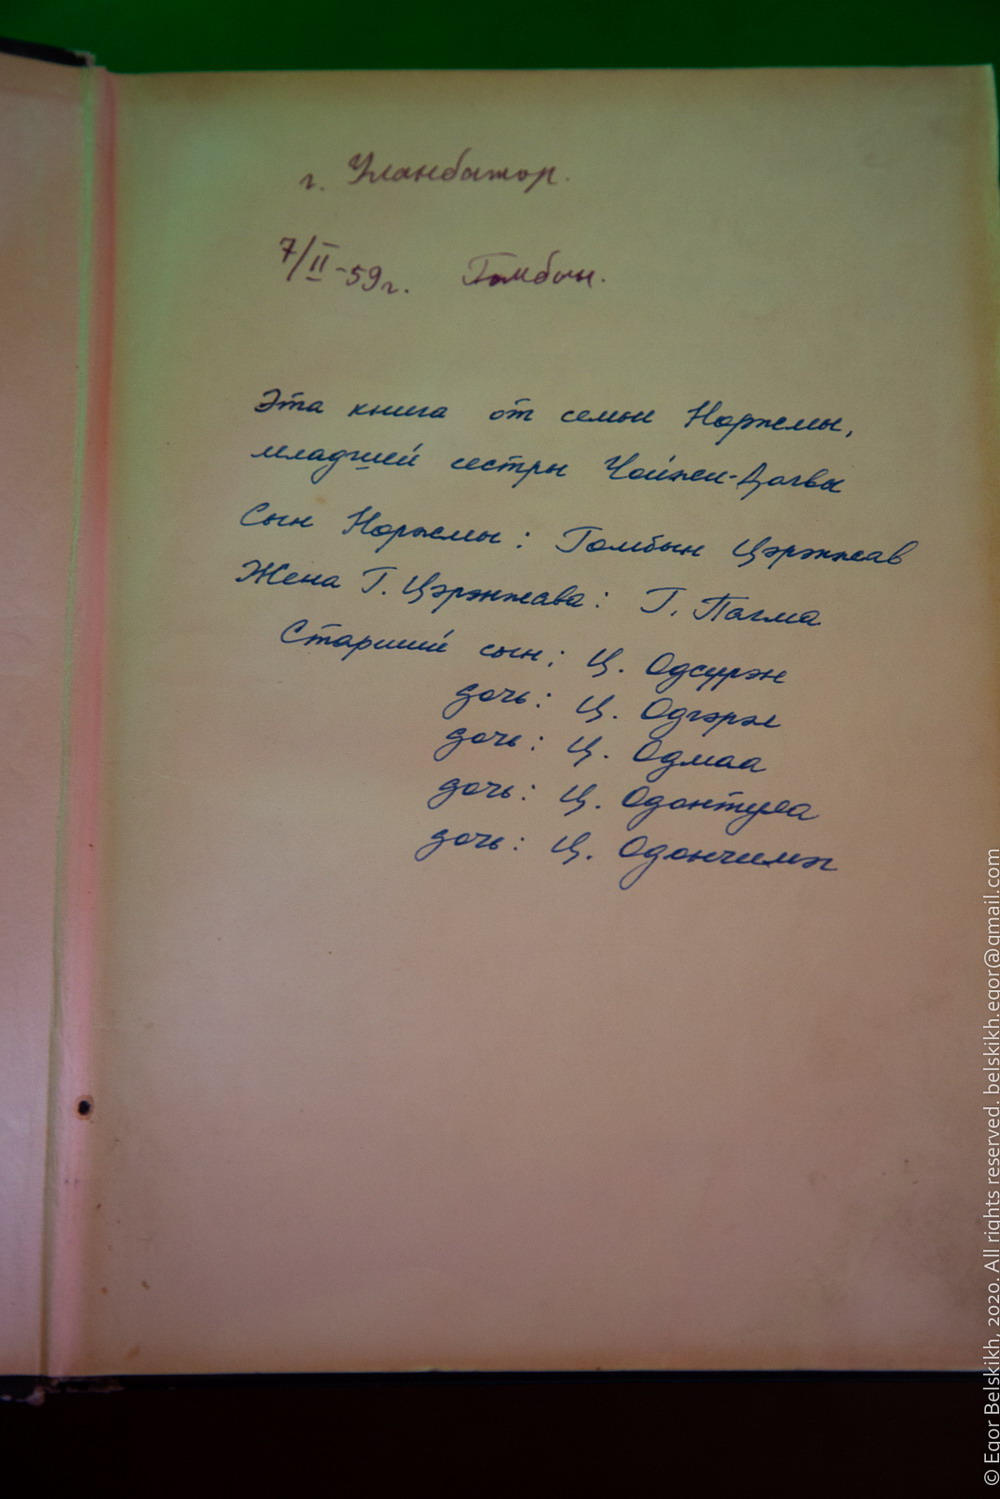 г. Уланбатор.
7/II-59г. Гомбын.
Эта книга от семьи Норжмы,
младшей сестры Чойжи-Дагвы
Сын Норжмы: Гомбын Цэрэнжав
Жена Г. Цэрэнжава: Г. Пагма
Старший сын: Ц. Одсурэн
дочь: Ц. Одгэрэл
дочь: Ц. Одмаа
дочь: Ц. Одонтуяа
дочь: Ц. Одончимэг
© Egor Belskikh, 2020. All rights reserved. belskikh.egor@gmail.com